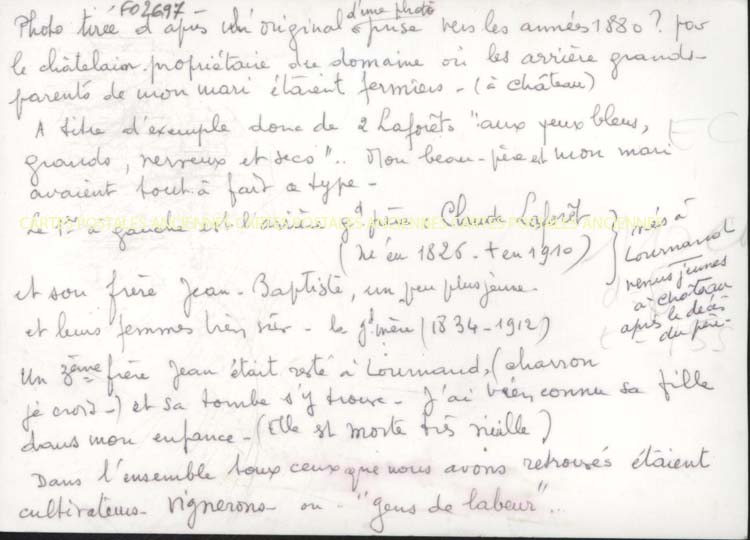 F02697
Photo tirée d'après un original d'une photo prise vers les années 1880? par
le châtelain propriétaire du domaine où les arrière grands-
parents de mon mari étaient fermiers - (à château)
A titre d'exemple donc de 2 Laforêts "aux yeux bleus,
grands, nerveux et secs".. Mon beau-père et mon mari
avaient tout à fait ce type -
CARTES POSTALES ANCIENNES CARTES POSTALES ANCIENNES CARTES POSTALES ANCIENNES
Le 1er à gauche est l'arrière gd père Claude Laforêt
(né en 1826 - + en 1910)
et son frère Jean-Baptiste, un peu plus jeune -
et leurs femmes bien sûr - la gd mère (1834-1912)
nés à
Lournand
venus jeunes
à château
après le décès
du père -
Un 3ème frère Jean était resté à Lournand, (charron
je crois -) et sa tombe s'y trouve - J'ai bien connu sa fille
dans mon enfance - (Elle est morte très vieille)
Dans l'ensemble tous ceux que nous avons retrouvés étaient
cultivateurs - vignerons - ou - "gens de labeur"...